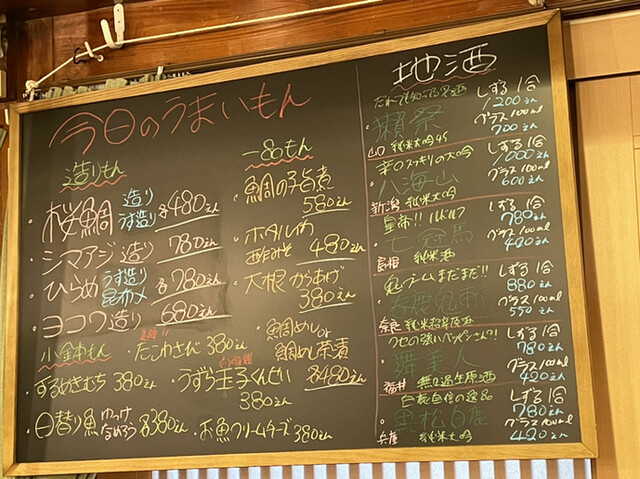 今日のうまいもん
造りもん
・桜鯛 造り うす造り 各480えん
・シマアジ 造り 780えん
・ひらめ うす造り 昆布〆 各780えん
・ヨコワ造り 680えん
小鉢もん
・たこわさん 380えん
するめきむち 380えん
・うずら玉子くんせい 380えん
・日替り魚 ゆっけ なめろう 各380えん
・お魚クリームチーズ 380えん
一品もん
・鯛の子旨煮 580えん
・ホタルいか 酢みそ 480えん
・大根からあげ 380えん
・鯛めし or 鯛めし茶漬 各480えん
地酒
だれでも知ってる名酒
・獺祭
山口 純米大吟45
しずる1合 1200えん
グラス100ml 700えん
辛口スッキリの大吟
・八海山
新潟 純米大吟
しずる1合 1000えん
グラス100ml 600えん
皇帝!! ルドルフ
・七冠馬
島根 純米酒
しずる1合 780えん
グラス100ml 420えん
ブームまだまだ!!
奈良
しずる1合 880えん
グラス100ml 550えん
クセの強いべっぴんさん!!
・舞美人
福井 無ろ過生原酒
しずる1合 780えん
グラス100ml 420えん
自信の逸品
・奥松白鹿
兵庫 純米大吟
しずる1合 780えん
グラス100ml 420えん